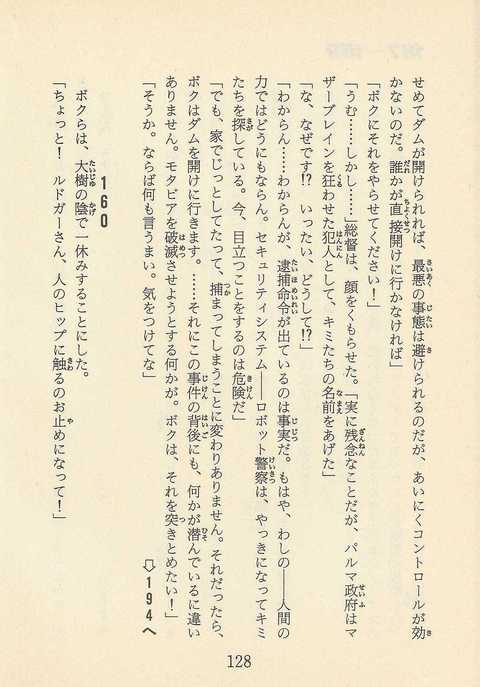 せめてダムが開けられれば、最悪の事態は避けられるのだが、あいにくコントロールが効
かないのだ。誰かが直接開けに行かなければ」
「ボクにそれをやらせてください！」
「うむ……しかし……」総督は、顔をくもらせた。「実に残念なことだが、パルマ政府はマ
ザーブレインを狂わせた犯人として、キミたちの名前をあげた」
「な、なぜです!?　いったい、どうして!?」
「わからん……わからんが、逮捕命令が出ているのは事実だ。もはや、わしの――人間の
力ではどうにもならん。セキュリティシステム――ロボット警察は、やっきになってキミ
たちを探している。今、目立つことをするのは危険だ」
「でも、家でじっとしてたって、捕まってしまうことに変わりありません。それだったら、
ボクはダムを開けに行きます。……それにこの事件の背後にも、何かが潜んでいるに違い
ありません。モタビアを破滅させようとする何かが。ボクは、それを突きとめたい！」
「そうか。ならば何も言うまい。気をつけてな」
⇨194へ
160
ボクらは、大樹の陰で一休みすることにした。
「ちょっと！　ルドガーさん、人のヒップに触るのお止めになって！」
128